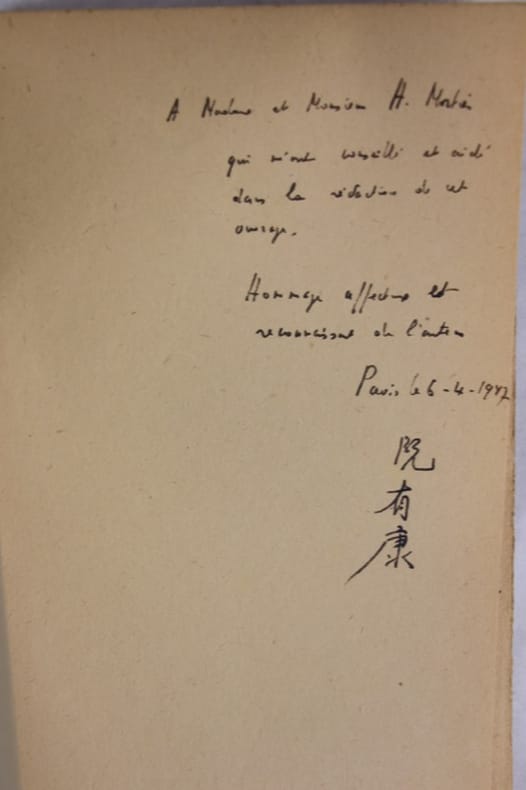 A Madame et Monsieur H.
qui m'ont conseillé et aidé
dans la rédaction de cet
ouvrage.
Hommage affectueux et
reconnaissant de l'auteur
Paris le 6-4-
阮
有
康